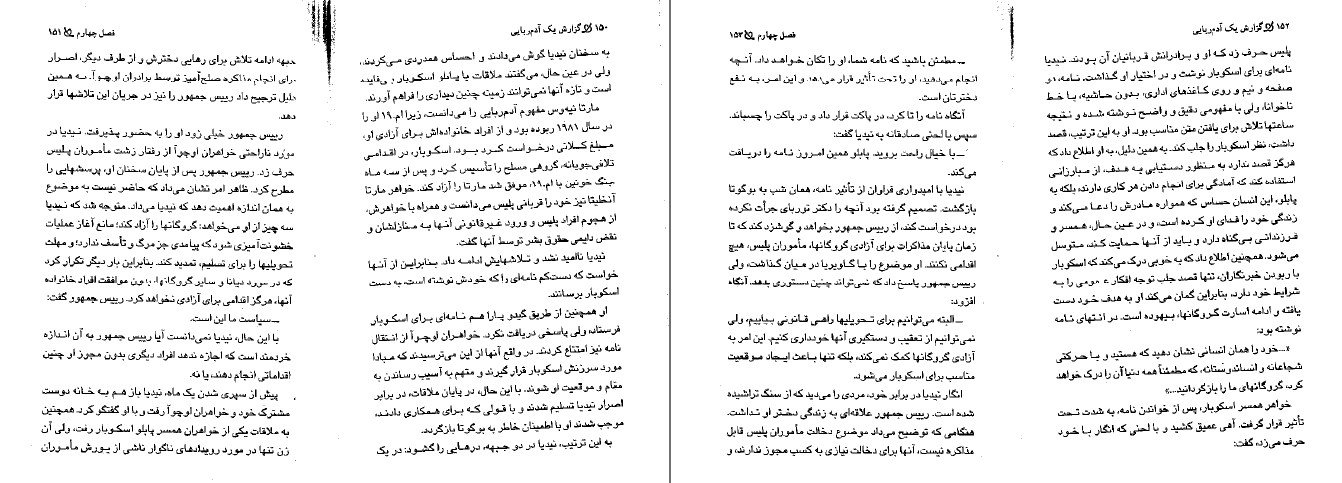 ۱۵۰ گزارش یک آدم‌ربایی
به سخنان نیدیا گوش می‌دادند و احساس همدردی می‌کردند.
ولی در عین حال، می‌گفتند ملاقات با پابلو اسکوبار بی‌فایده
است و تازه آنها نمی‌توانند زمینه چنین دیداری را فراهم آورند.
مارتا نیه‌وس مفهوم آدم‌ربایی را می‌دانست، زیرا ام.۱۹ او را
در سال ۱۹۸۱ ربوده بود و از افراد خانواده‌اش برای آزادی او،
مبلغ کلانی درخواست کرد بود. اسکوبار، در اقدامی
تلافی‌جویانه، گروهی مسلح را تأسیس کرد و پس از سه ماه
جنگ خونین با ام.۱۹، موفق شد مارتا را آزاد کند. خواهر مارتا
آنخلیتا نیز خود را قربانی پلیس می‌دانست و همراه با خواهرش،
از هجوم افراد پلیس و ورود غیرقانونی آنها به منازلشان و
نقض دایمی حقوق بشر توسط آنها گفت.
نیدیا ناامید نشد و تلاشهایش ادامه داد. بنابراین از آنها
خواست که دست‌کم نامه‌ای را که خودش نوشته است، به دست
اسکوبار برسانند.
او همچنین از طریق گیدو پارا هم نامه‌ای برای اسکوبار
فرستاد، ولی پاسخی دریافت نکرد. خواهران اوچوآ از انتقال
نامه نیز امتناع کردند. در واقع آنها از این می‌ترسیدند که مبادا
مورد سرزنش اسکوبار قرار گیرند و متهم به آسیب رساندن به
مقام و موقعیت او شوند. با این حال، در پایان ملاقات، در برابر
اصرار نیدیا تسلیم شدند و با قولی که برای همکاری دادند،
موجب شدند او با اطمینان خاطر به بوگوتا بازگردد.
به این ترتیب، نیدیا در دو جبهه، درهایی را گشود: در یک
فصل چهارم ۱۵۱
جبهه ادامه تلاش برای رهایی دخترش و از طرف دیگر، اصرار
برای انجام مذاکره صلح‌آمیز توسط برادران اوچوآ. به همین
دلیل ترجیح داد رییس جمهور را نیز در جریان این تلاشها قرار
دهد.
رییس جمهور خیلی زود او را به حضور پذیرفت. نیدیا در
مورد ناراحتی خواهران اوچوآ از رفتار زشت مأموران پلیس
حرف زد. رییس جمهور پس از پایان سخنان او، پرسشهایی را
مطرح کرد. ظاهر امر نشان می‌داد که حاضر نیست به موضوع
به همان اندازه اهمیت دهد که نیدیا می‌داد. متوجه شد که نیدیا
سه چیز از او می‌خواهد: گروگانها را آزاد کند؛ مانع آغاز عملیات
خشونت‌آمیزی شود که پیامدی جز مرگ و تأسف ندارد؛ و مهلت
تحویلیها را برای تسلیم، تمدید کند. بنابراین بار دیگر تکرار کرد
که در مورد دیانا و سایر گروگانها، بدون موافقت افراد خانواده
آنها، هرگز اقدامی برای آزادی نخواهد کرد. رییس جمهور گفت:
ــ سیاست ما این است.
با این حال، نیدیا نمی‌دانست آیا رییس جمهور به آن اندازه
خردمند است که اجازه ندهد افراد دیگری بدون مجوز او چنین
اقداماتی انجام دهند، یا نه.
پیش از سپری شدن یک ماه، نیدیا باز هم به خانه دوست
مشترک خود و خواهران اوچوآ رفت و با او گفتگو کرد. همچنین
به ملاقات یکی از خواهران همسر پابلو اسکوبار رفت، ولی آن
زن تنها در مورد رویدادهای ناگوار ناشی از یورش مأموران
۱۵۲ گزارش یک آدم‌ربایی
پلیس حرف زد که او و برادرانش قربانیان آن بودند. نیدیا
نامه‌ای برای اسکوبار نوشت و در اختیار او گذاشت. نامه، دو
صفحه و نیم و روی کاغذهای اداری، بدون حاشیه، با خط
ناخوانا، ولی با مفهومی دقیق و واضح نوشته شده و نتیجه
ساعتها تلاش برای یافتن متن مناسب بود. او به این ترتیب، قصد
داشت، نظر اسکوبار را جلب کند. به همین دلیل، به او اطلاع داد که
هرگز قصد ندارد به منظور دستیابی به هدف، از مبارزانی
استفاده کند که آمادگی برای انجام دادن هر کاری دارند، بلکه به
پابلو، این انسان حساس که همواره مادرش را دعا می‌کند و
زندگی خود را فدای او کرده است، و در عین حال، همسر و
فرزندانی بی‌گناه دارد و باید از آنها حمایت کند، متوسل
می‌شود. همچنین اطلاع داد که به خوبی درک می‌کند که اسکوبار
با ربودن خبرنگاران، تنها قصد جلب توجه افکار عمومی را به
شرایط خود دارد، بنابراین گمان می‌کند او به هدف خود دست
یافته و ادامه اسارت گروگانها، بیهوده است. در انتهای نامه
نوشته بود:
«...خود را همان انسانی نشان دهید که هستید و با حرکتی
شجاعانه و انساندوستانه، که مطمئناً همه دنیا آن را درک خواهد
کرد، گروگانهای ما را بازگردانید...»
خواهر همسر اسکوبار، پس از خواندن نامه، به شدت تحت
تأثیر قرار گرفت. آهی عمیق کشید و با لحنی که انگار با خود
حرف می‌زد، گفت:
فصل چهارم ۱۵۳
ــ مطمئن باشید که نامه شما، او را تکان خواهد داد. آنچه
انجام می‌دهید، او را تحت تأثیر قرار می‌دهد و این امر، به نفع
دخترتان است.
آنگاه نامه را تا کرد، در پاکت قرار داد و در پاکت را چسباند.
سپس با لحنی صادقانه به نیدیا گفت:
ــ با خیال راحت بروید. پابلو همین امروز نامه را دریافت
می‌کند.
نیدیا با امیدواری فراوان از تأثیر نامه، همان شب به بوگوتا
بازگشت. تصمیم گرفته بود آنچه را دکتر توربای جرأت نکرده
بود درخواست کند، از رییس جمهور بخواهد و گوشزد کند که تا
زمان پایان مذاکرات برای آزادی گروگانها، مأموران پلیس، هیچ
اقدامی نکنند. او موضوع را با گاویریا در میان گذاشت، ولی
رییس جمهور پاسخ داد که نمی‌تواند چنین دستوری بدهد. آنگاه
افزود:
ــ البته می‌توانیم برای تحویلیها راهی قانونی بیابیم، ولی
نمی‌توانیم از تعقیب و دستگیری آنها خودداری کنیم. این امر به
آزادی گروگانها کمک نمی‌کند، بلکه تنها باعث ایجاد موقعیت
مناسب برای اسکوبار می‌شود.
انگار نیدیا در برابر خود، مردی را می‌دید که از سنگ تراشیده
شده است. رییس جمهور علاقه‌ای به زندگی دختر او نداشت.
هنگامی که توضیح می‌داد موضوع دخالت مأموران پلیس قابل
مذاکره نیست، آنها برای دخالت نیازی به کسب مجوز ندارند، و